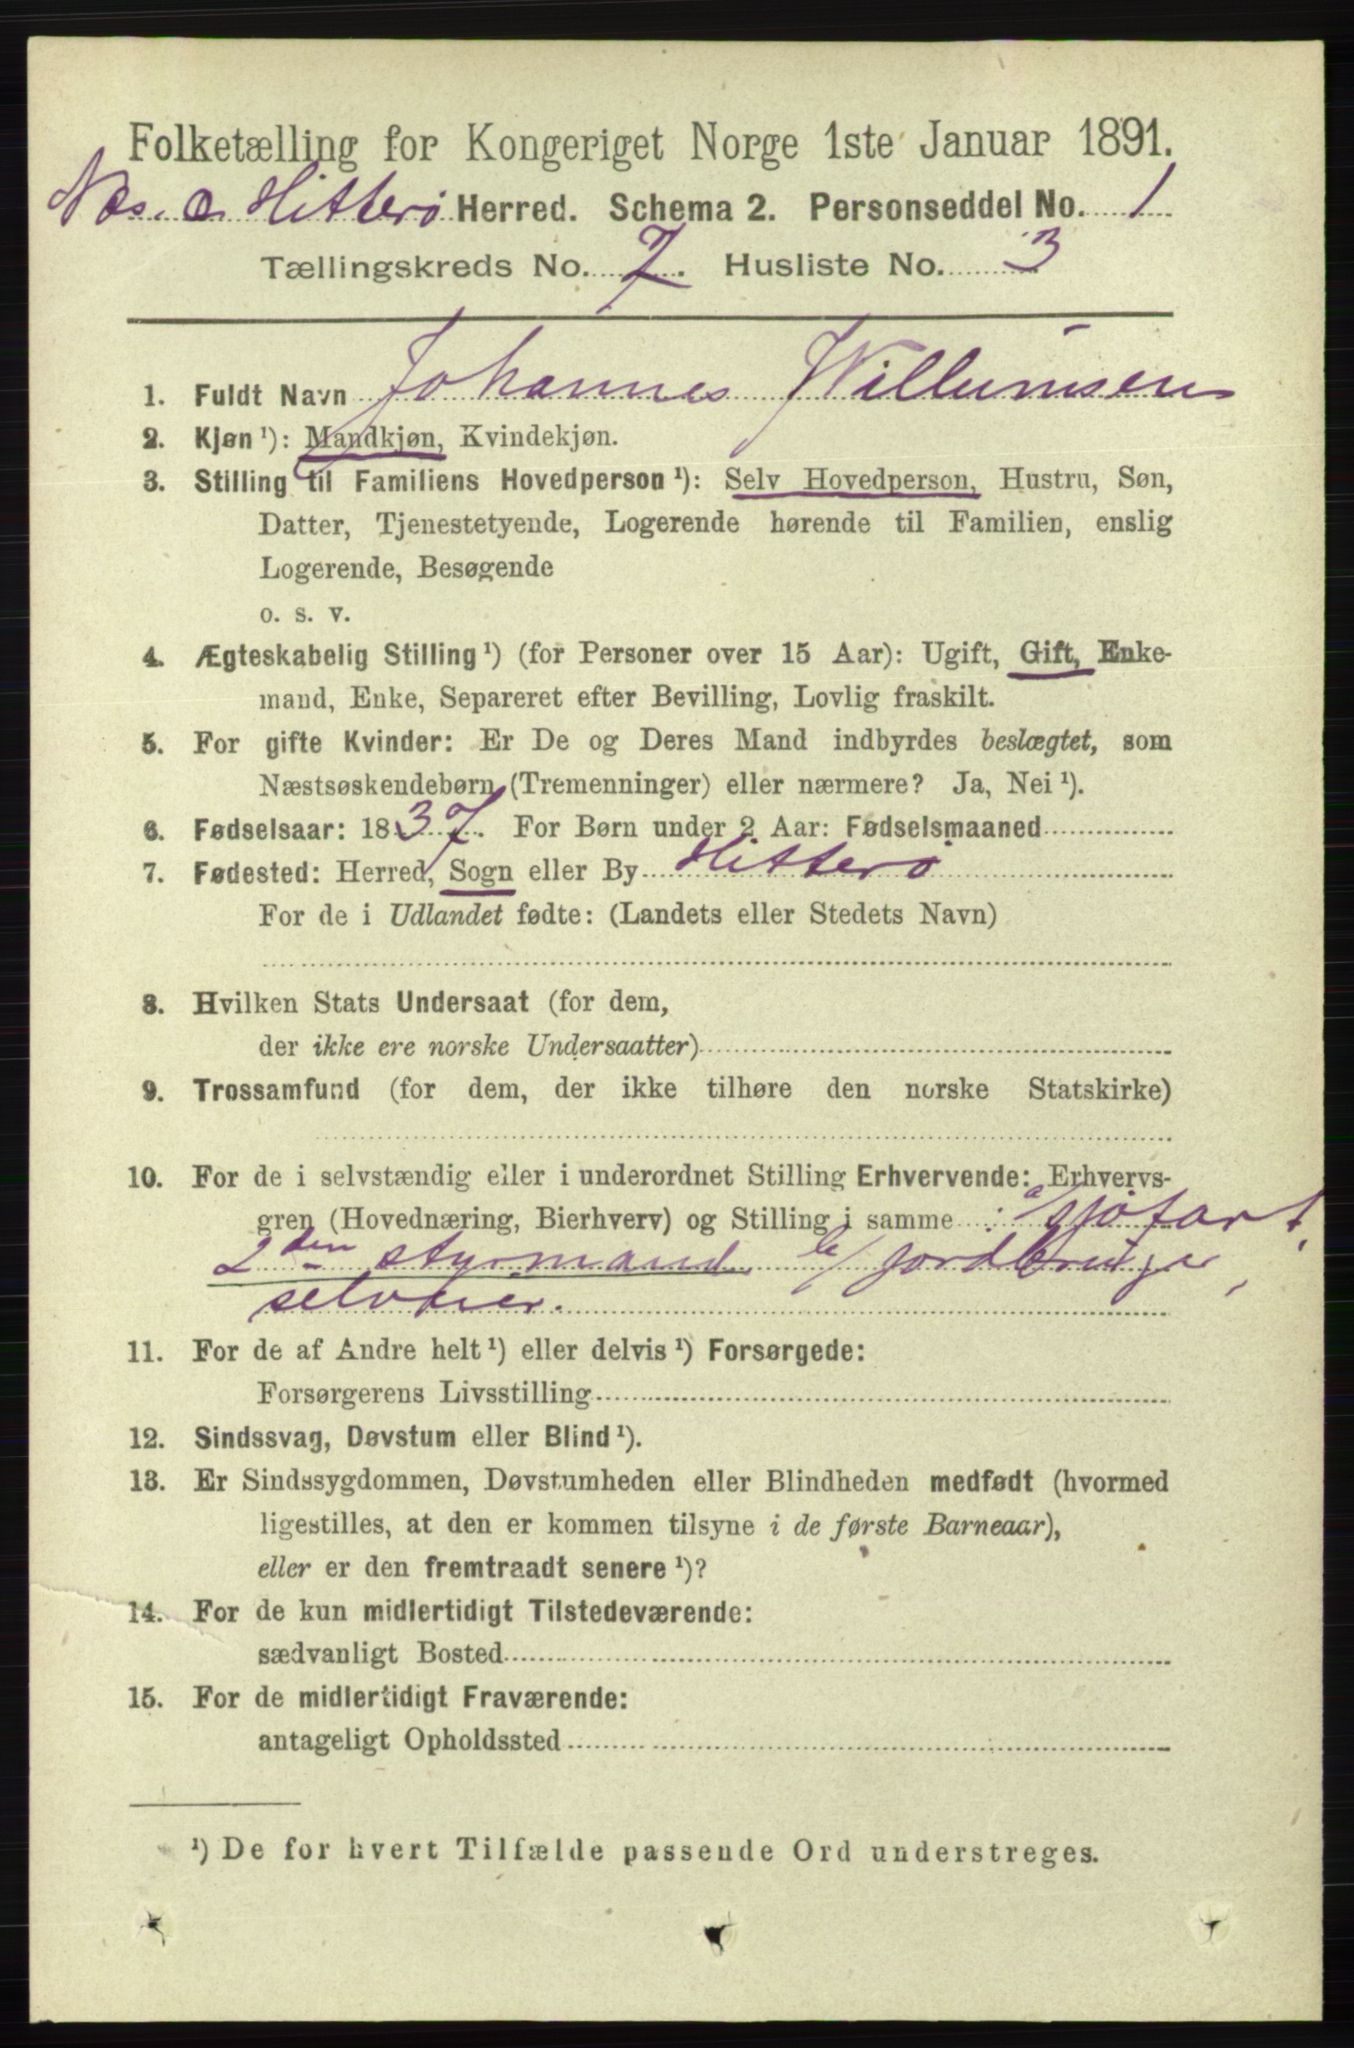 Folketælling for Kongeriget Norge 1ste Januar 1891.
Næs. o Hitterø Herred. Schema 2. Personseddel No. 1
Tællingskreds No. 7. Husliste No. 3
1. Fuldt Navn Johannes Willumsen
2. Kjøn¹): Mandkjøn, Kvindekjøn.
3. Stilling til Familiens Hovedperson¹): Selv Hovedperson, Hustru, Søn,
Datter, Tjenestetyende, Logerende hørende til Familien, enslig
Logerende, Besøgende
o. s. v.
4. Ægteskabelig Stilling¹) (for Personer over 15 Aar): Ugift, Gift, Enke-
mand, Enke, Separeret efter Bevilling, Lovlig fraskilt.
5. For gifte Kvinder: Er De og Deres Mand indbyrdes beslægtet, som
Næstsøskendebørn (Tremenninger) eller nærmere? Ja, Nei¹).
6. Fødselsaar: 1837. For Børn under 2 Aar: Fødselsmaaned
7. Fødested: Herred, Sogn eller By Hitterø
For de i Udlandet fødte: (Landets eller Stedets Navn)
8. Hvilken Stats Undersaat (for dem,
der ikke ere norske Undersaatter)
9. Trossamfund (for dem, der ikke tilhøre den norske Statskirke)
10. For de i selvstændig eller i underordnet Stilling Erhvervende: Erhvervs-
gren (Hovednæring, Bierhverv) og Stilling i samme : a/ sjøfart,
2den styrmand b/ jordbruger,
selveier.
11. For de af Andre helt¹) eller delvis¹) Forsørgede:
Forsørgerens Livsstilling
12. Sindssvag, Døvstum eller Blind¹).
13. Er Sindssygdommen, Døvstumheden eller Blindheden medfødt (hvormed
ligestilles, at den er kommen tilsyne i de første Barneaar),
eller er den fremtraadt senere¹)?
14. For de kun midlertidigt Tilstedeværende:
sædvanligt Bosted
15. For de midlertidigt Fraværende:
antageligt Opholdssted
¹) De for hvert Tilfælde passende Ord understreges.